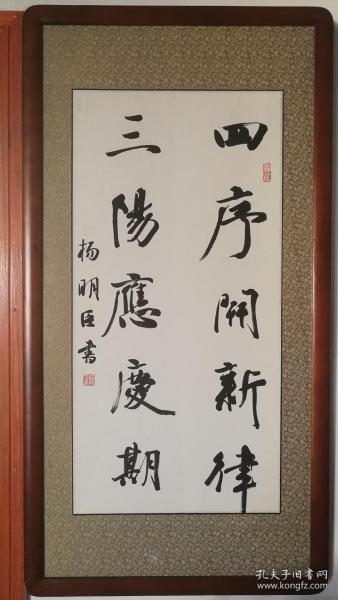 四序開新律
三陽應慶期
杨明臣書
孔夫子旧书网
www.kongfz.com